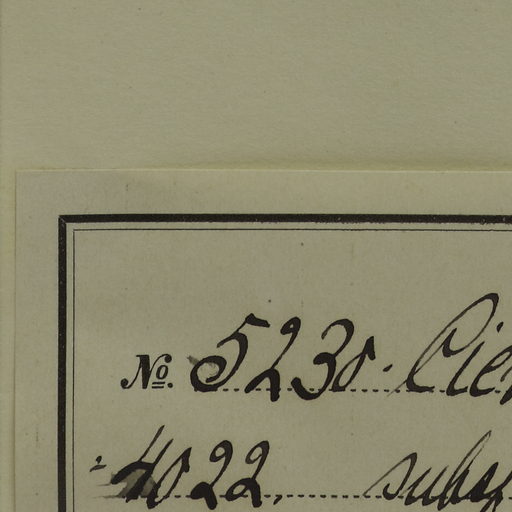 No. 5230. Cie
4022, subs